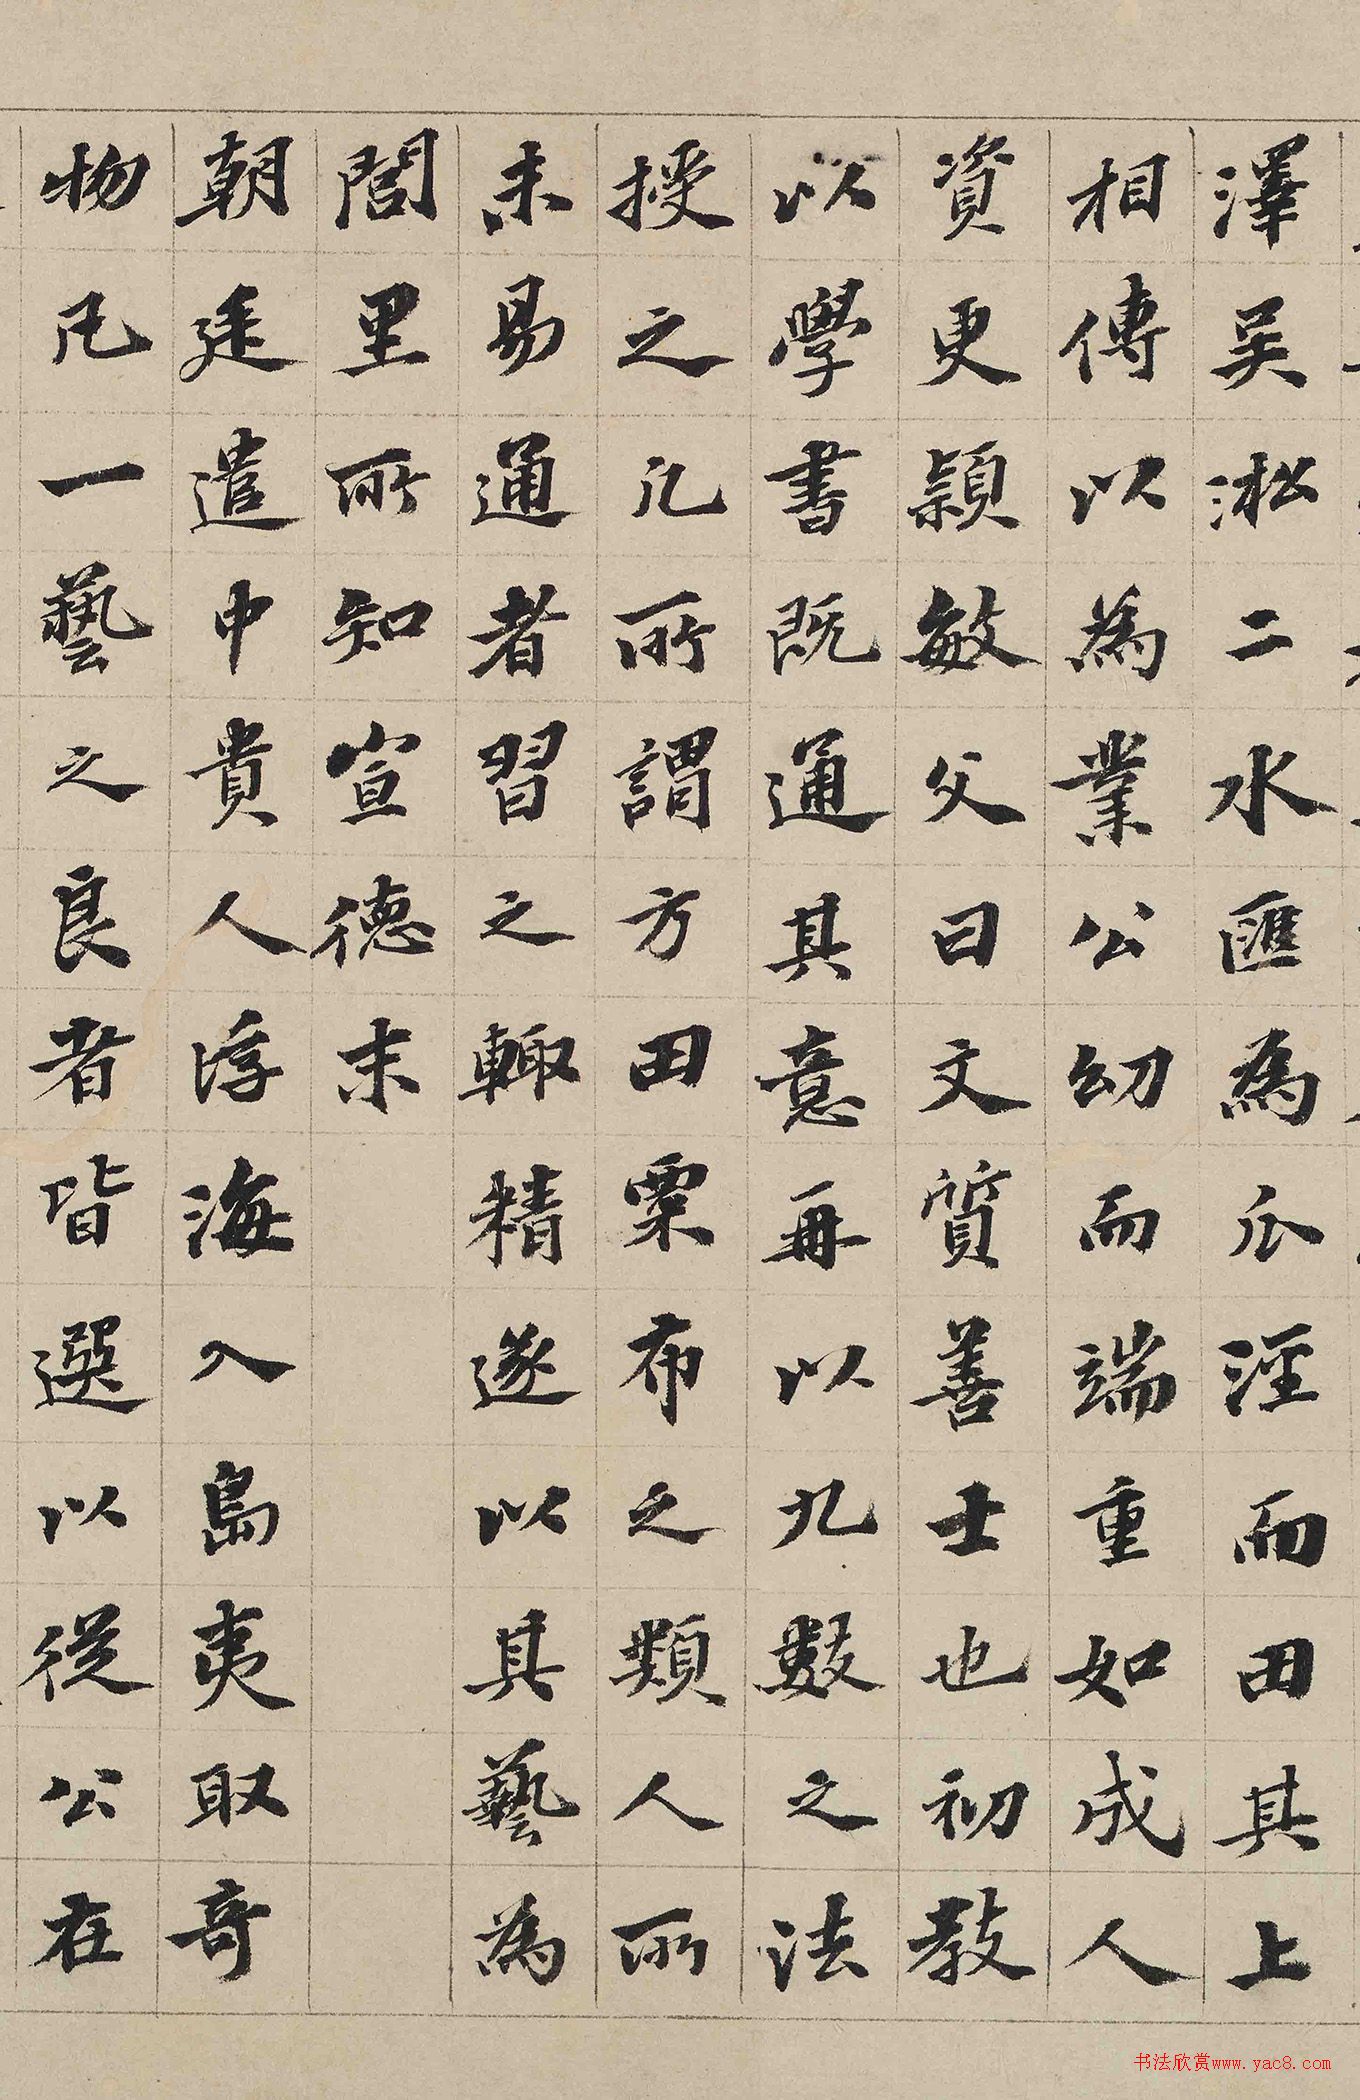 澤吳淞二水匯為瓜涇而田其上
相傳以為業公幼而端重如成人
資更穎敏父曰文質善士也初教
以學書既通其意再以九數之法
授之凡所謂方田粟布之類人所
未易通者習之輙精遂以其藝為
閭里所知宣德末
朝廷遣中貴人浮海入島夷取奇
物凡一藝之良者皆選以從公在
书法欣赏www.yac8.com